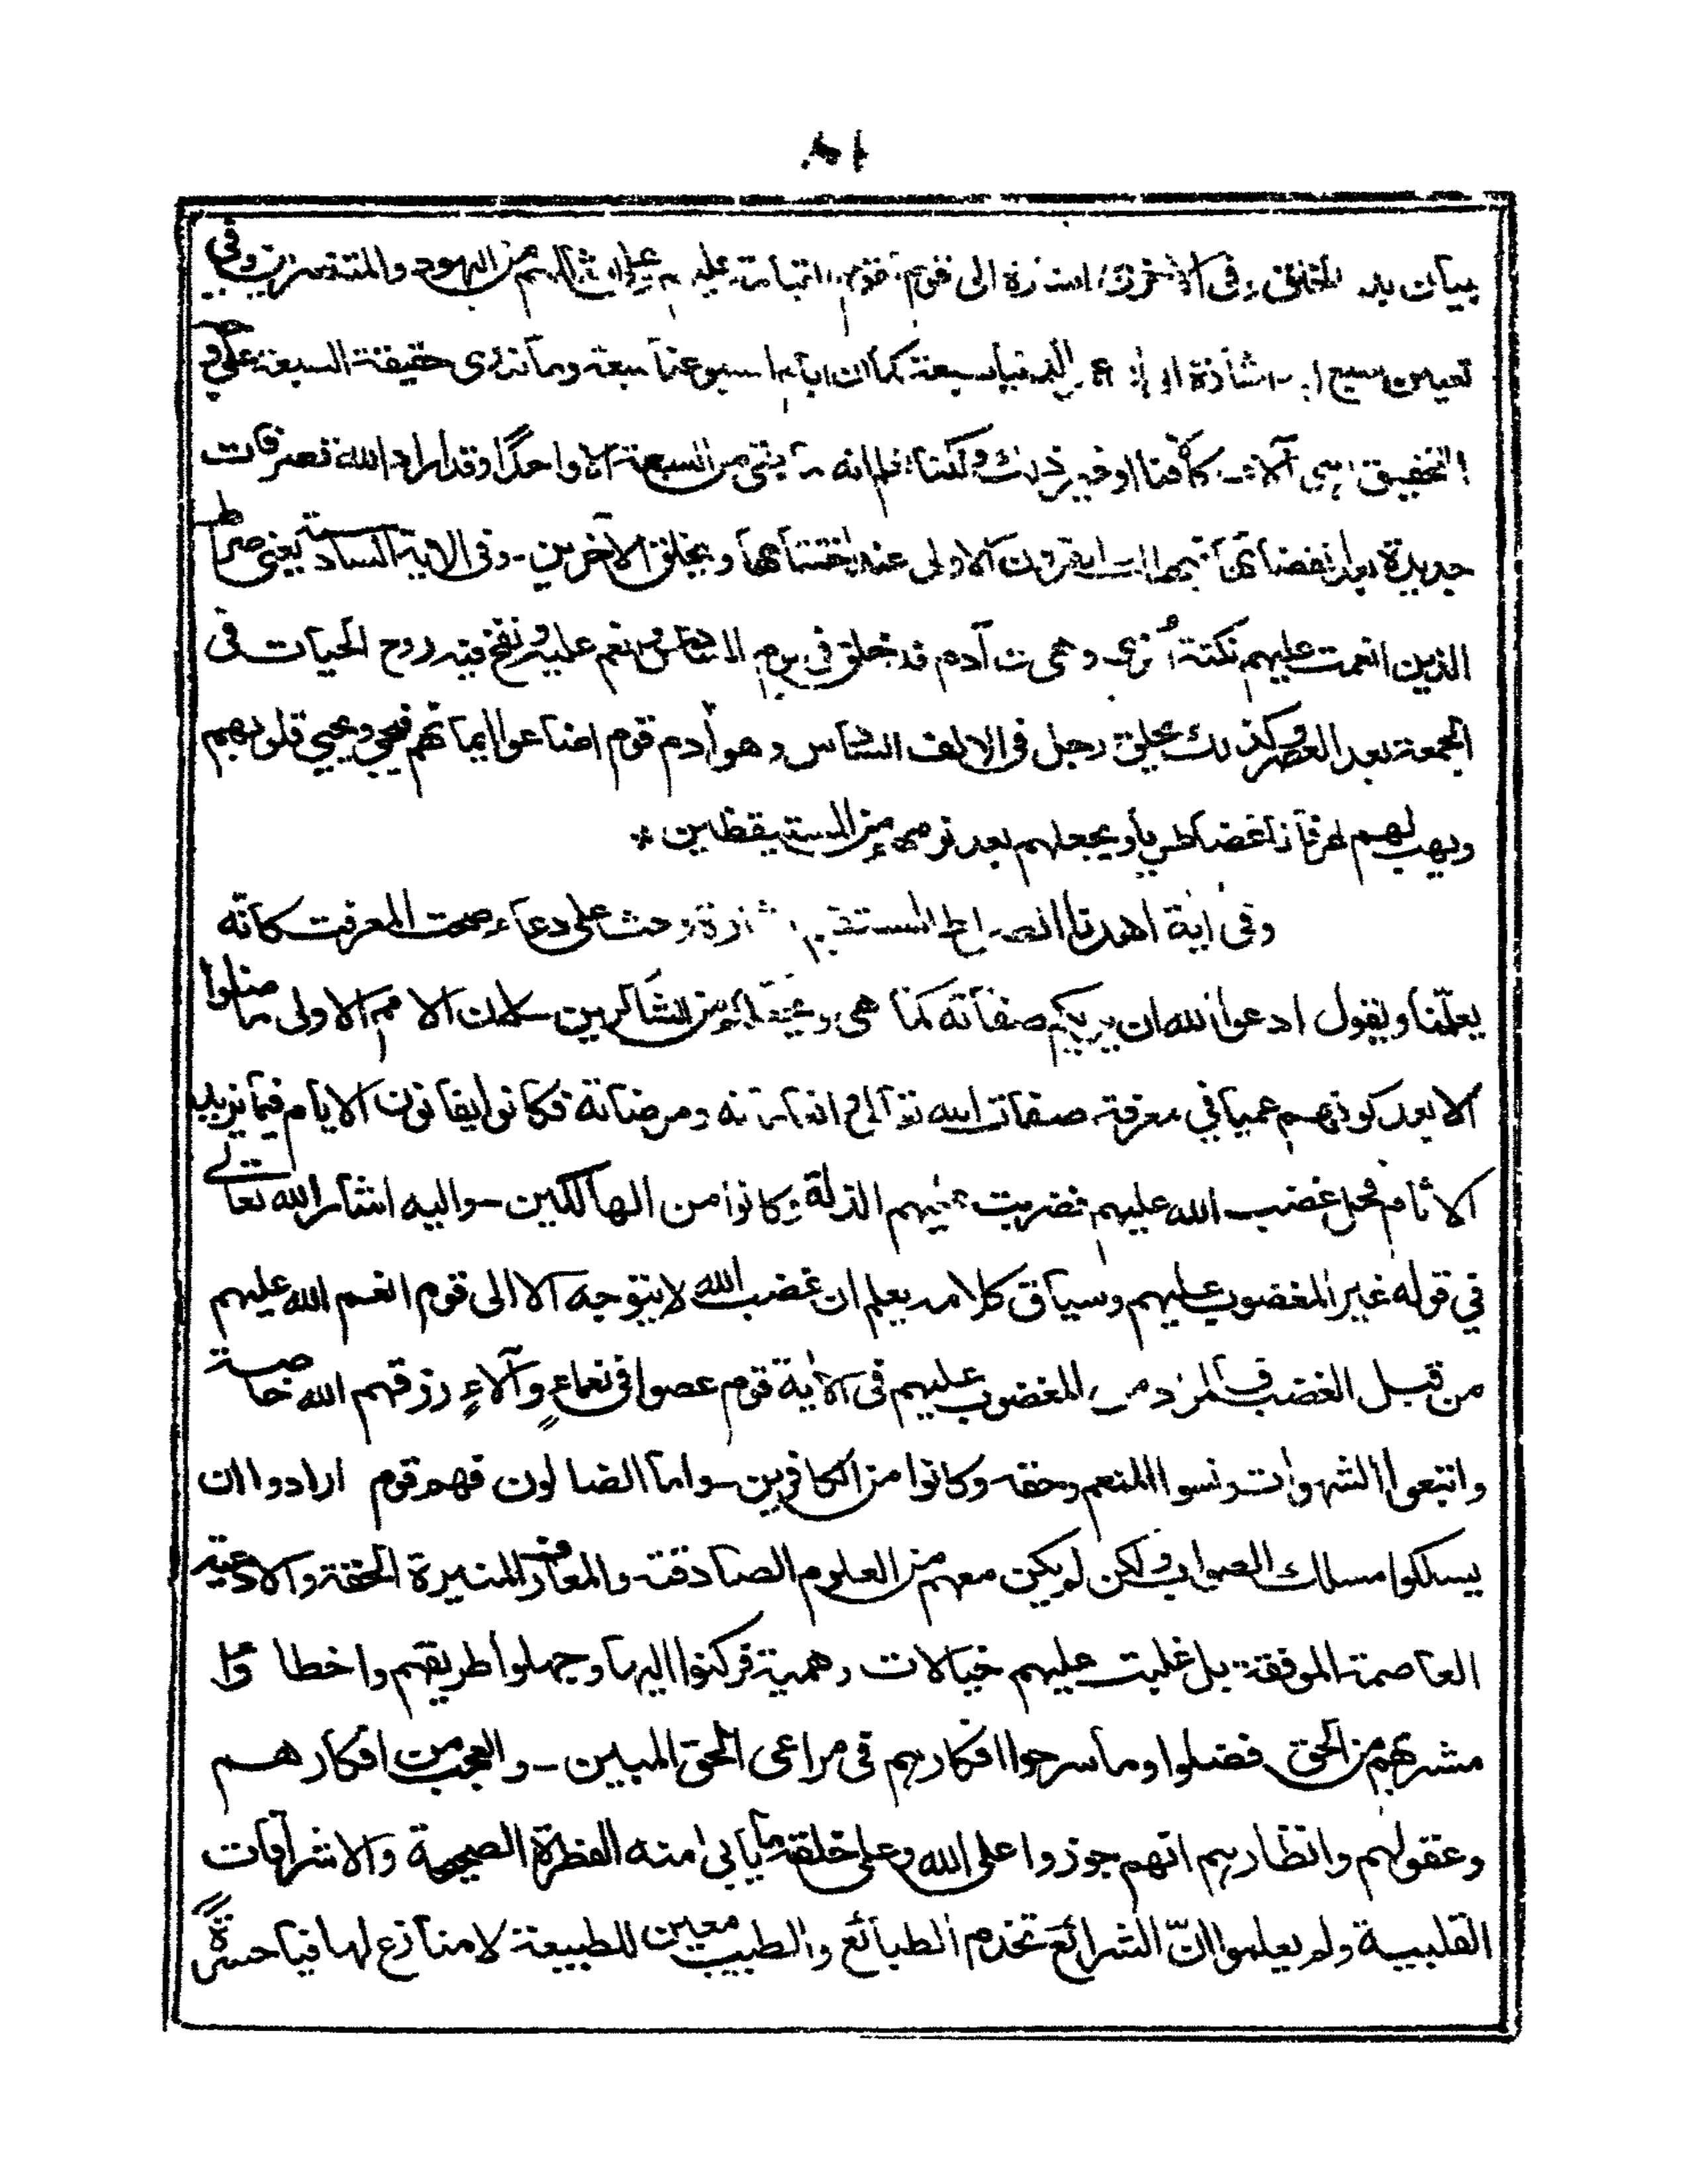 بيان بدء الخلق وفى الاخرى اشارة الى قوم تقوم القيامة عليهم وعلى امثالهم من اليهود والمتنصرين وفى
تعيين سبع اشارة الى ان عمر الدنيا سبعة كما ان ايام اسبوعنا سبعة وما ندرى حقيقة السبعة على وجه
التحقيق اهى آلاف كآلافنا او غير ذلك ولكنا نعلم انه ما بقى من السبعة الا واحدًا وقد اراد الله تصرفات
جديدة بعد انقضائها القرون الاولى عند اختتامها ويخلق الآخرين - وفى الاية السادسة يعنى صراط
الذين انعمت عليهم نكتة أخرى وهى ان آدم قد خلق فى يوم السادس وانعم عليه ونفخ فيه روح الحيات فى
الجمعة بعد العصر وكذلك يخلق رجل فى الالف السادس وهو أدم قوم اضاعوا ايمانهم فيجئ ويحيى قلوبهم
ويهب لهم عرفانا غضا طريا ويجعلهم بعد نومهم من المستيقظين *
وفى اية اهدنا الصراط المستقيم اشارة وحث على دعاء صحت المعرفت كانه
يعلّمنا ويقول ادعوا الله ان يريكم صفاته كما هى ويجعلكم من الشاكرين - لان الامم الاولى ما ضلوا
الا بعد كونهم عميا فى معرفة صفات الله تعالى وانعاماته ومرضاته فكانوا يفانون الايام فيما يزيد
الاثام فحل غضب الله عليهم فضربت عليهم الذلة وكانوا من الهالكين - واليه اشار الله تعالى
فى قوله غير المغضوب عليهم وسياق كلامه يعلم ان غضب الله لا يتوجه الا الى قوم انعم الله عليهم
من قبل الغضب فالمراد من المغضوب عليهم فى الاية قوم عصوا فى نعماءٍ وآلاءٍ رزقهم الله خاصة
واتبعوا الشهوات ونسوا المنعم وحقه وكانوا من الكافرين - واما الضالون فهم قوم ارادوا ان
يسلكوا مسلك الصواب ولكن لم يكن معهم من العلوم الصادقة والمعارف المنيرة الحقة والادعية
العاصمة الموفقة بل غلبت عليهم خيالات وهمية فركنوا اليها وجهلوا طريقهم واخطاؤا
مشربهم من الحق فضلوا وما سرحوا افكارهم فى مراعى الحق المبين - والعجب من افكارهم
وعقولهم وانظارهم انهم جوزوا على الله وعلى خلقه ما يابى منه الفطرة الصحيحة والاشراقات
القلبية ولم يعلموا انّ الشرائع تخدم الطبائع والطبيب معين للطبيعة لا منازع لها فيا حسرةً